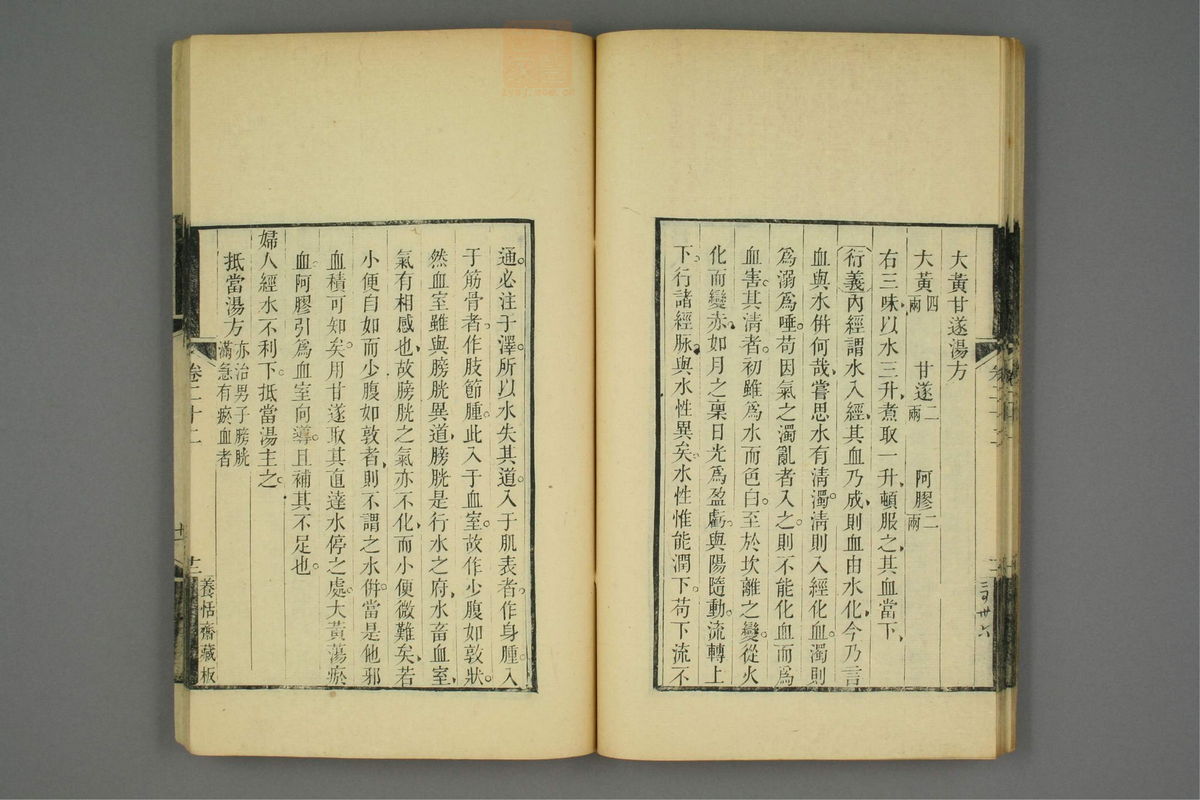 大黃甘遂湯方
大黃四兩　甘遂二兩　阿膠二兩
右三味以水三升煮取一升頓服之其血當下
衍義內經謂水入經其血乃成則血由水化今乃言
血與水倂何哉嘗思水有淸濁淸則入經化血濁則
爲溺爲唾苟因氣之濁亂者入之則不能化血而爲
血害其淸者初雖爲水而色白至於坎離之變從火
化而變赤如月之稟日光爲盈虧與陽隨動流轉上
下行諸經脉與水性異矣水性惟能潤下苟下流不
通必注于澤所以水失其道入于肌表者作身腫入
于筋骨者作肢節腫此入于血室故作少腹如敦狀
然血室雖與膀胱異道膀胱是行水之府水畜血室
氣有相感也故膀胱之氣亦不化而小便微難矣若
小便自如而少腹如敦者則不謂之水倂當是他邪
血積可知矣用甘遂取其直達水停之處大黃蕩瘀
血阿膠引爲血室向導且補其不足也
婦人經水不利下抵當湯主之
抵當湯方亦治男子膀胱滿急有瘀血者
卷二十二
十二
養恬齋藏板